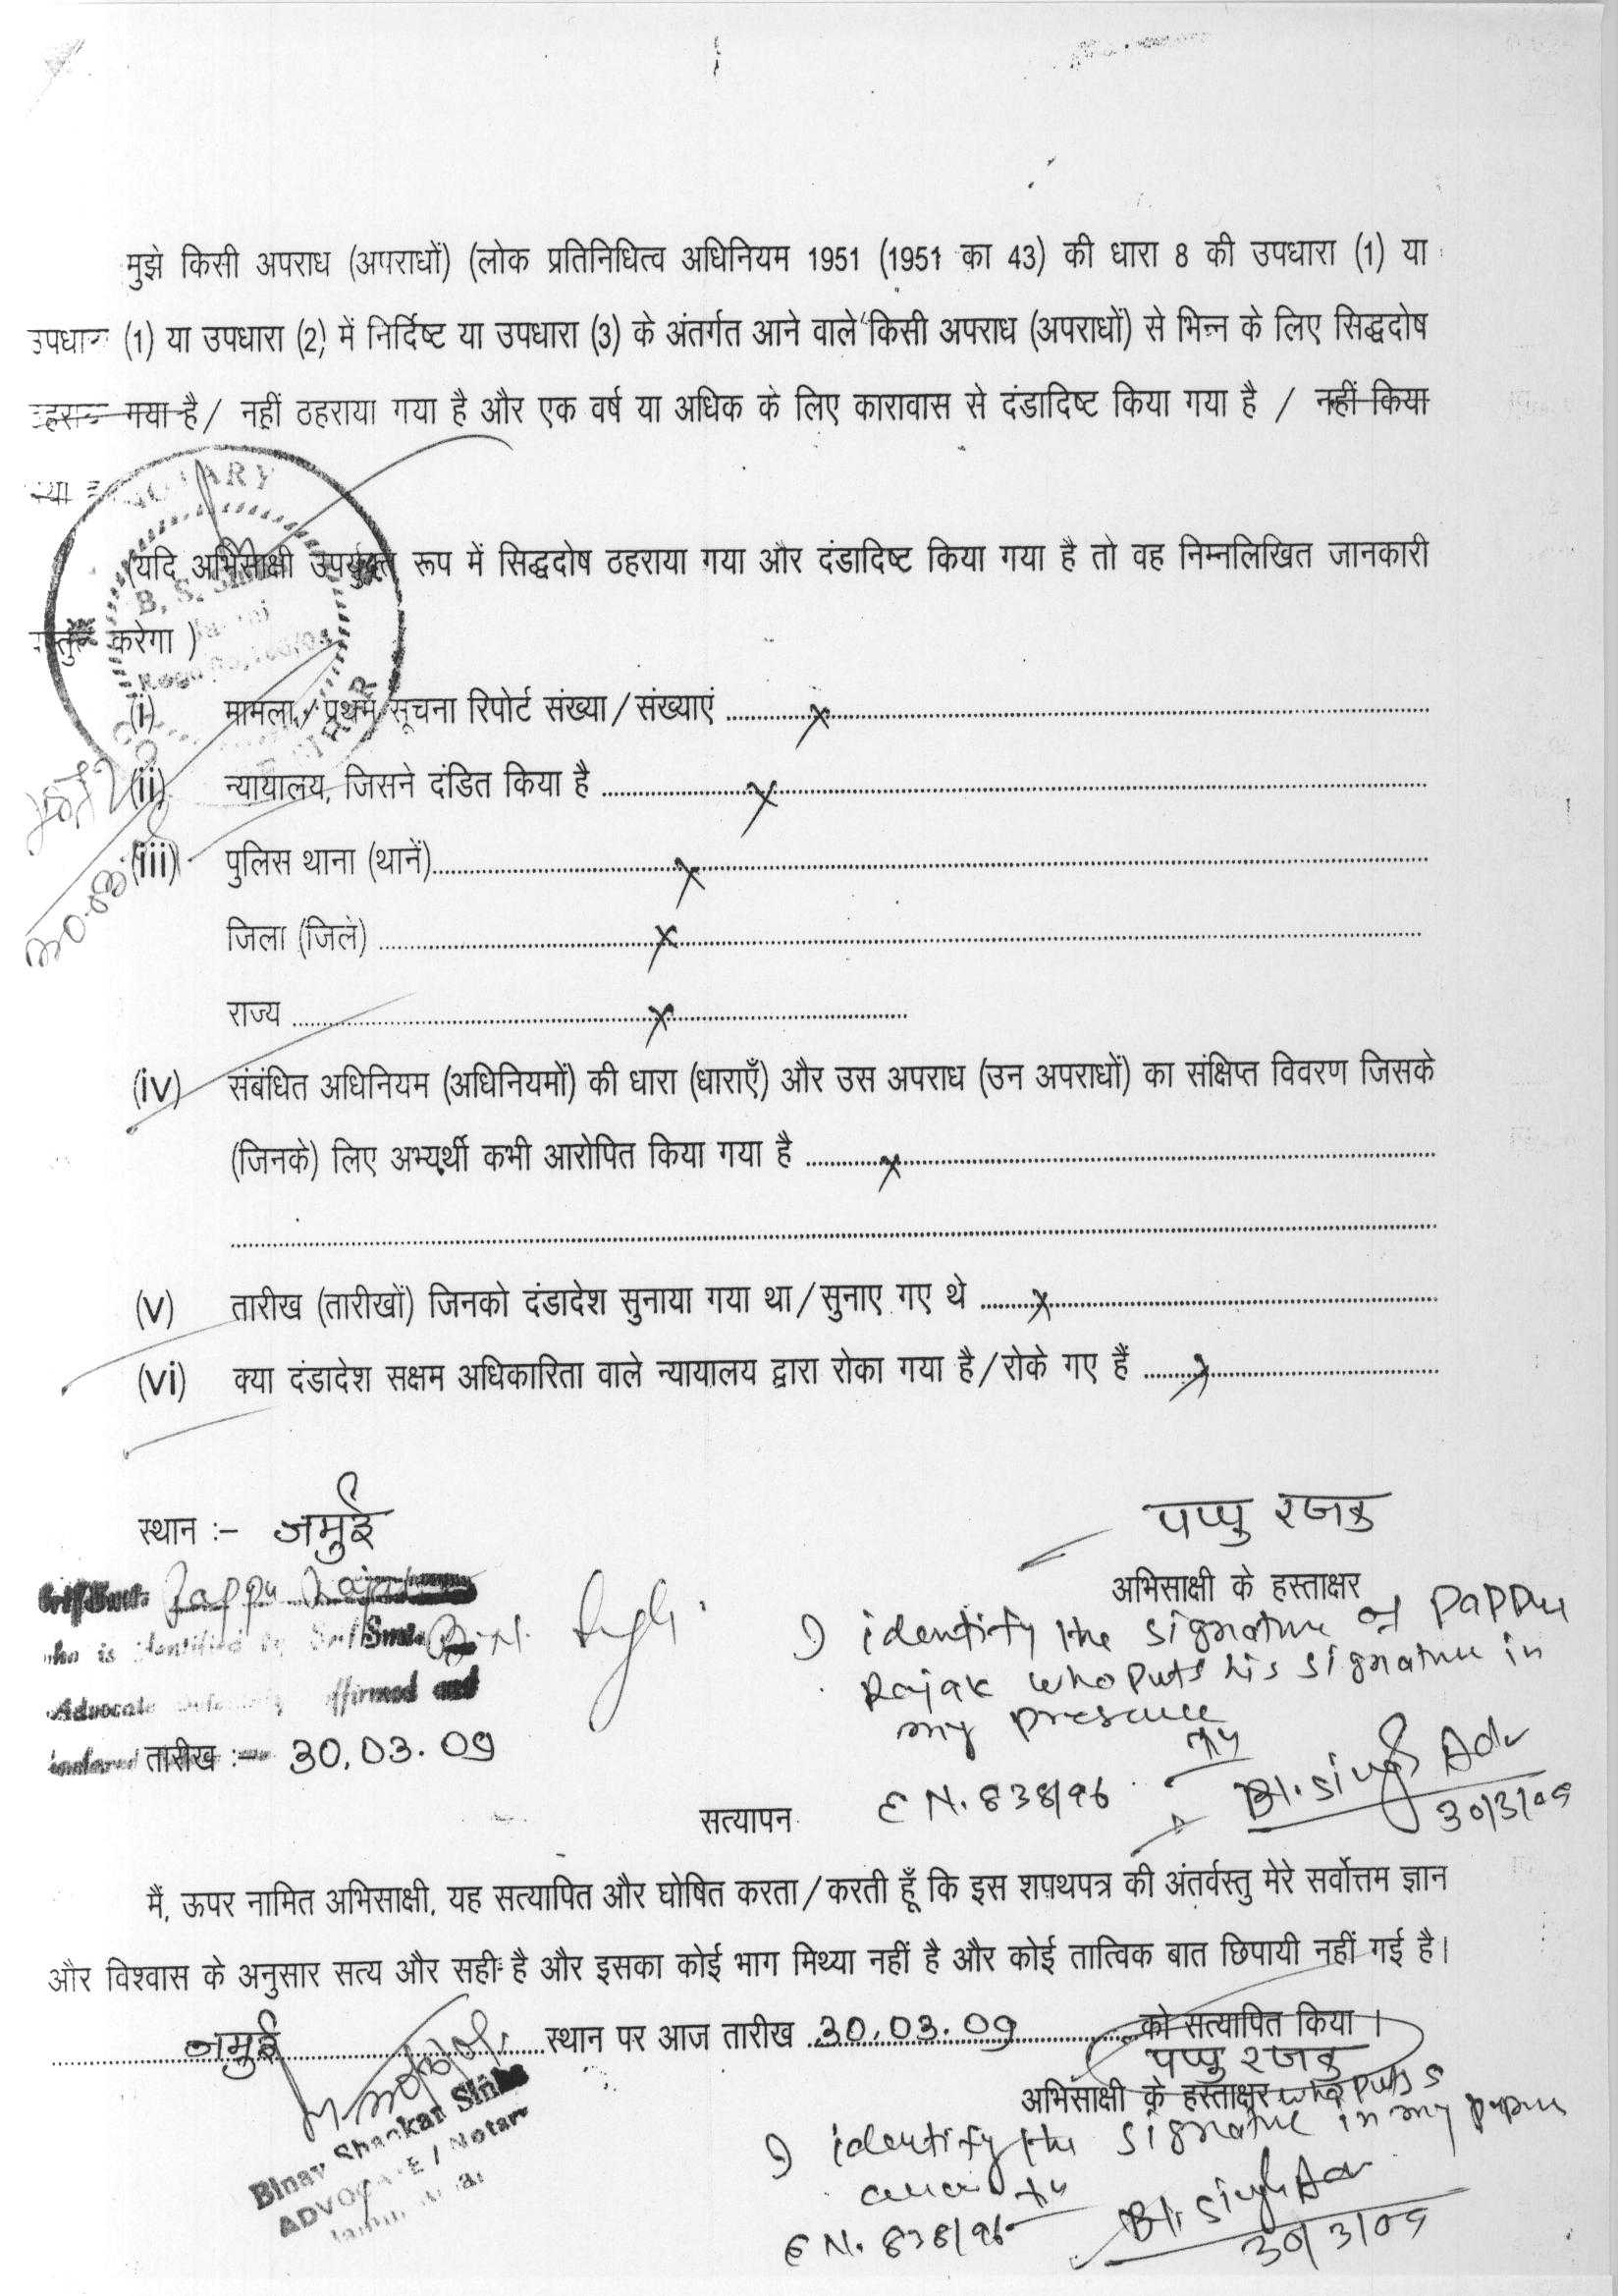 मुझे किसी अपराध (अपराधों) (लोक प्रतिनिधित्व अधिनियम 1951 (1951 का 43) की धारा 8 की उपधारा (1) या
उपधारा (1) या उपधारा (2) में निर्दिष्ट या उपधारा (3) के अंतर्गत आने वाले किसी अपराध (अपराधों) से भिन्न के लिए सिद्धदोष
गया है / नहीं ठहराया गया है और एक वर्ष या अधिक के लिए कारावास से दंडादिष्ट किया गया है / नहीं किया
NOTARY
(यदि अभिसाक्षी उपर्युक्त रूप में सिद्धदोष ठहराया गया और दंडादिष्ट किया गया है तो वह निम्नलिखित जानकारी
B. S.
करेगा )
(i) मामला / प्रथम सूचना रिपोर्ट संख्या / संख्याएं ........ x ........
(ii) न्यायालय, जिसने दंडित किया है ........ x ........
(iii) पुलिस थाना (थानें)........ x ........
जिला (जिले) ........ x ........
राज्य ........ x ........
(iv) संबंधित अधिनियम (अधिनियमों) की धारा (धाराएँ) और उस अपराध (उन अपराधों) का संक्षिप्त विवरण जिसके
(जिनके) लिए अभ्यर्थी कभी आरोपित किया गया है ........ x ........
(v) तारीख (तारीखों) जिनको दंडादेश सुनाया गया था / सुनाए गए थे ........ x ........
(vi) क्या दंडादेश सक्षम अधिकारिता वाले न्यायालय द्वारा रोका गया है / रोके गए हैं ........ x ........
पप्पु रजक
स्थान :- जमुई
अभिसाक्षी के हस्ताक्षर
Pappu Rajak
who is identified by Sri/Smt. B.N. Singh
Advocate affirmed and
I identify the signature of Pappu
Rajak who puts his signature in
my presence
तारीख :- 30.03.09
B.N. Singh Adv
E N. 838/96
30/3/09
सत्यापन
मैं, ऊपर नामित अभिसाक्षी, यह सत्यापित और घोषित करता / करती हूँ कि इस शपथपत्र की अंतर्वस्तु मेरे सर्वोत्तम ज्ञान
और विश्वास के अनुसार सत्य और सही है और इसका कोई भाग मिथ्या नहीं है और कोई तात्विक बात छिपायी नहीं गई है।
जमुई स्थान पर आज तारीख 30.03.09 को सत्यापित किया ।
पप्पु रजक
अभिसाक्षी के हस्ताक्षर who puts
I identify the signature in my
Binay Shankar Sinha
ADVOCATE / Notary
B.N. Singh Adv
E N. 838/96
30/3/09